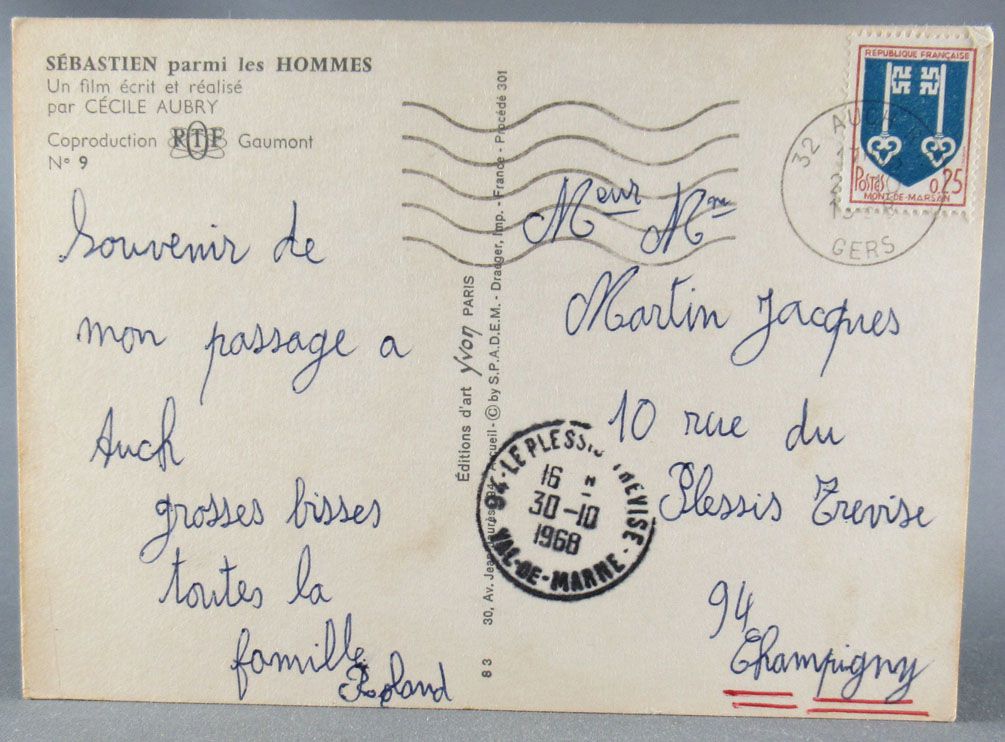 SÉBASTIEN parmi les HOMMES
Un film écrit et réalisé
par CÉCILE AUBRY
Coproduction RTF Gaumont
N° 9
Souvenir de
mon passage a
Auch
grosses bisses
toutes la
famille
Roland
Éditions d'art yvon PARIS
30, Av. Jean - © by S.P.A.D.E.M. - Draeger, Imp. - France - Procédé 301
83
RÉPUBLIQUE FRANÇAISE
POSTES 0,25
MONT-DE-MARSAN
32 AUCH
GERS
Meur Mm
Martin Jacques
10 rue du
Plessis Trevise
94
Champigny
94 - LE PLESSIS TREVISE -
16 H
30-10
1968
VAL-DE-MARNE